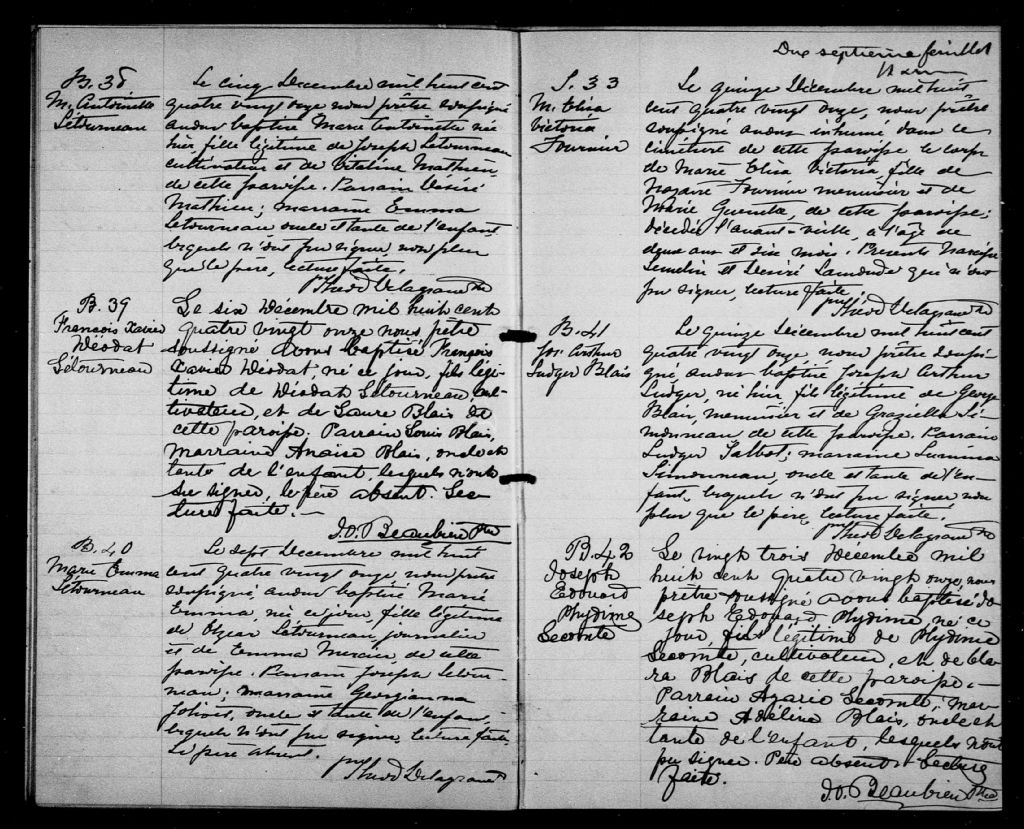 B. 38
M. Antoinette
Létourneau
Le cinq Décembre mil huit cent
quatre vingt onze nous prêtre soussigné
avons baptisé Marie Antoinette née
hier, fille légitime de Joseph Létourneau
cultivateur et de Vitaline Mathieu
de cette paroisse. Parrain Désiré
Mathieu; marraine Emma
Létourneau oncle et tante de l'enfant
lesquels n'ont pu signer, non plus
que le père, lecture faite.
Théod Delagrave Ptre
B. 39
François Xavier
Déodat
Létourneau
Le six Décembre mil huit cent
quatre vingt onze nous prêtre
soussigné avons baptisé François
Xavier Déodat, né ce jour, fils légi-
time de Déodat Létourneau, cul-
tivateur, et de Laure Blais de
cette paroisse. Parrain Louis Blais,
marraine Anaïse Blais, oncle et
tante de l'enfant, lesquels n'ont
su signer, le père absent. Lec-
ture faite.-
J.O. Beaubien Ptre
B. 40
Marie Emma
Létourneau
Le sept Decembre mil huit
cent quatre vingt onze, nous prêtre
soussigné avons baptisé Marie
Emma, née ce jour, fille légitime
de Létourneau, journalier
et de Emma Mercier, de cette
paroisse. Parrain Joseph Létour-
neau; marraine Georgianna
Jolivet, oncle et tante de l'enfant,
lesquels n'ont pu signer, lecture faite.
Le père absent.
Théod Delagrave Ptre
Dix septième feuillet
S. 33
M. Eliza
Victoria
Fournier
Le quinze Décembre mil huit
cent quatre vingt onze, nous prêtre
soussigné avons inhumé dans le
cimetière de cette paroisse le corps
de Marie Eliza Victoria, fille de
Nazaire Fournier menuisier et de
Marie Guenette, de cette paroisse;
décédée l'avant-veille, à l'âge de
deux ans et six mois. Présents Narcisse
Lemelin et Désiré Lamonde qui n'ont
pu signer, lecture faite.
Théod Delagrave Ptre
B. 41
Jos. Arthur
Ludger Blais
Le quinze Décembre mil huit cent
quatre vingt onze, nous prêtre soussi-
gné avons baptisé Joseph Arthur
Ludger, né hier, fils légitime de George
Blais, menuisier et de Graziella Si-
monneau de cette paroisse. Parrain
Ludger Talbot; marraine Lumina
Simonneau, oncle et tante de l'en-
fant, lesquels n'ont pu signer non
plus que le père, lecture faite.
Théod Delagrave Ptre
B. 42
Joseph
Edouard
Phydime
Lecomte
Le vingt trois Décembre mil
huit cent quatre vingt onze, nous
prêtre soussigné avons baptisé Jo-
seph Edouard, Phydime, né ce
jour, fils légitime de Phydime
Lecomte, cultivateur, et de Cla-
ra Blais de cette paroisse.-
Parrain Azarie Lecomte, mar-
raine Adéline Blais, oncle et
tante de l'enfant, lesquels n'ont
pu signer. Père absent. Lecture
faite.
J.O. Beaubien Ptre